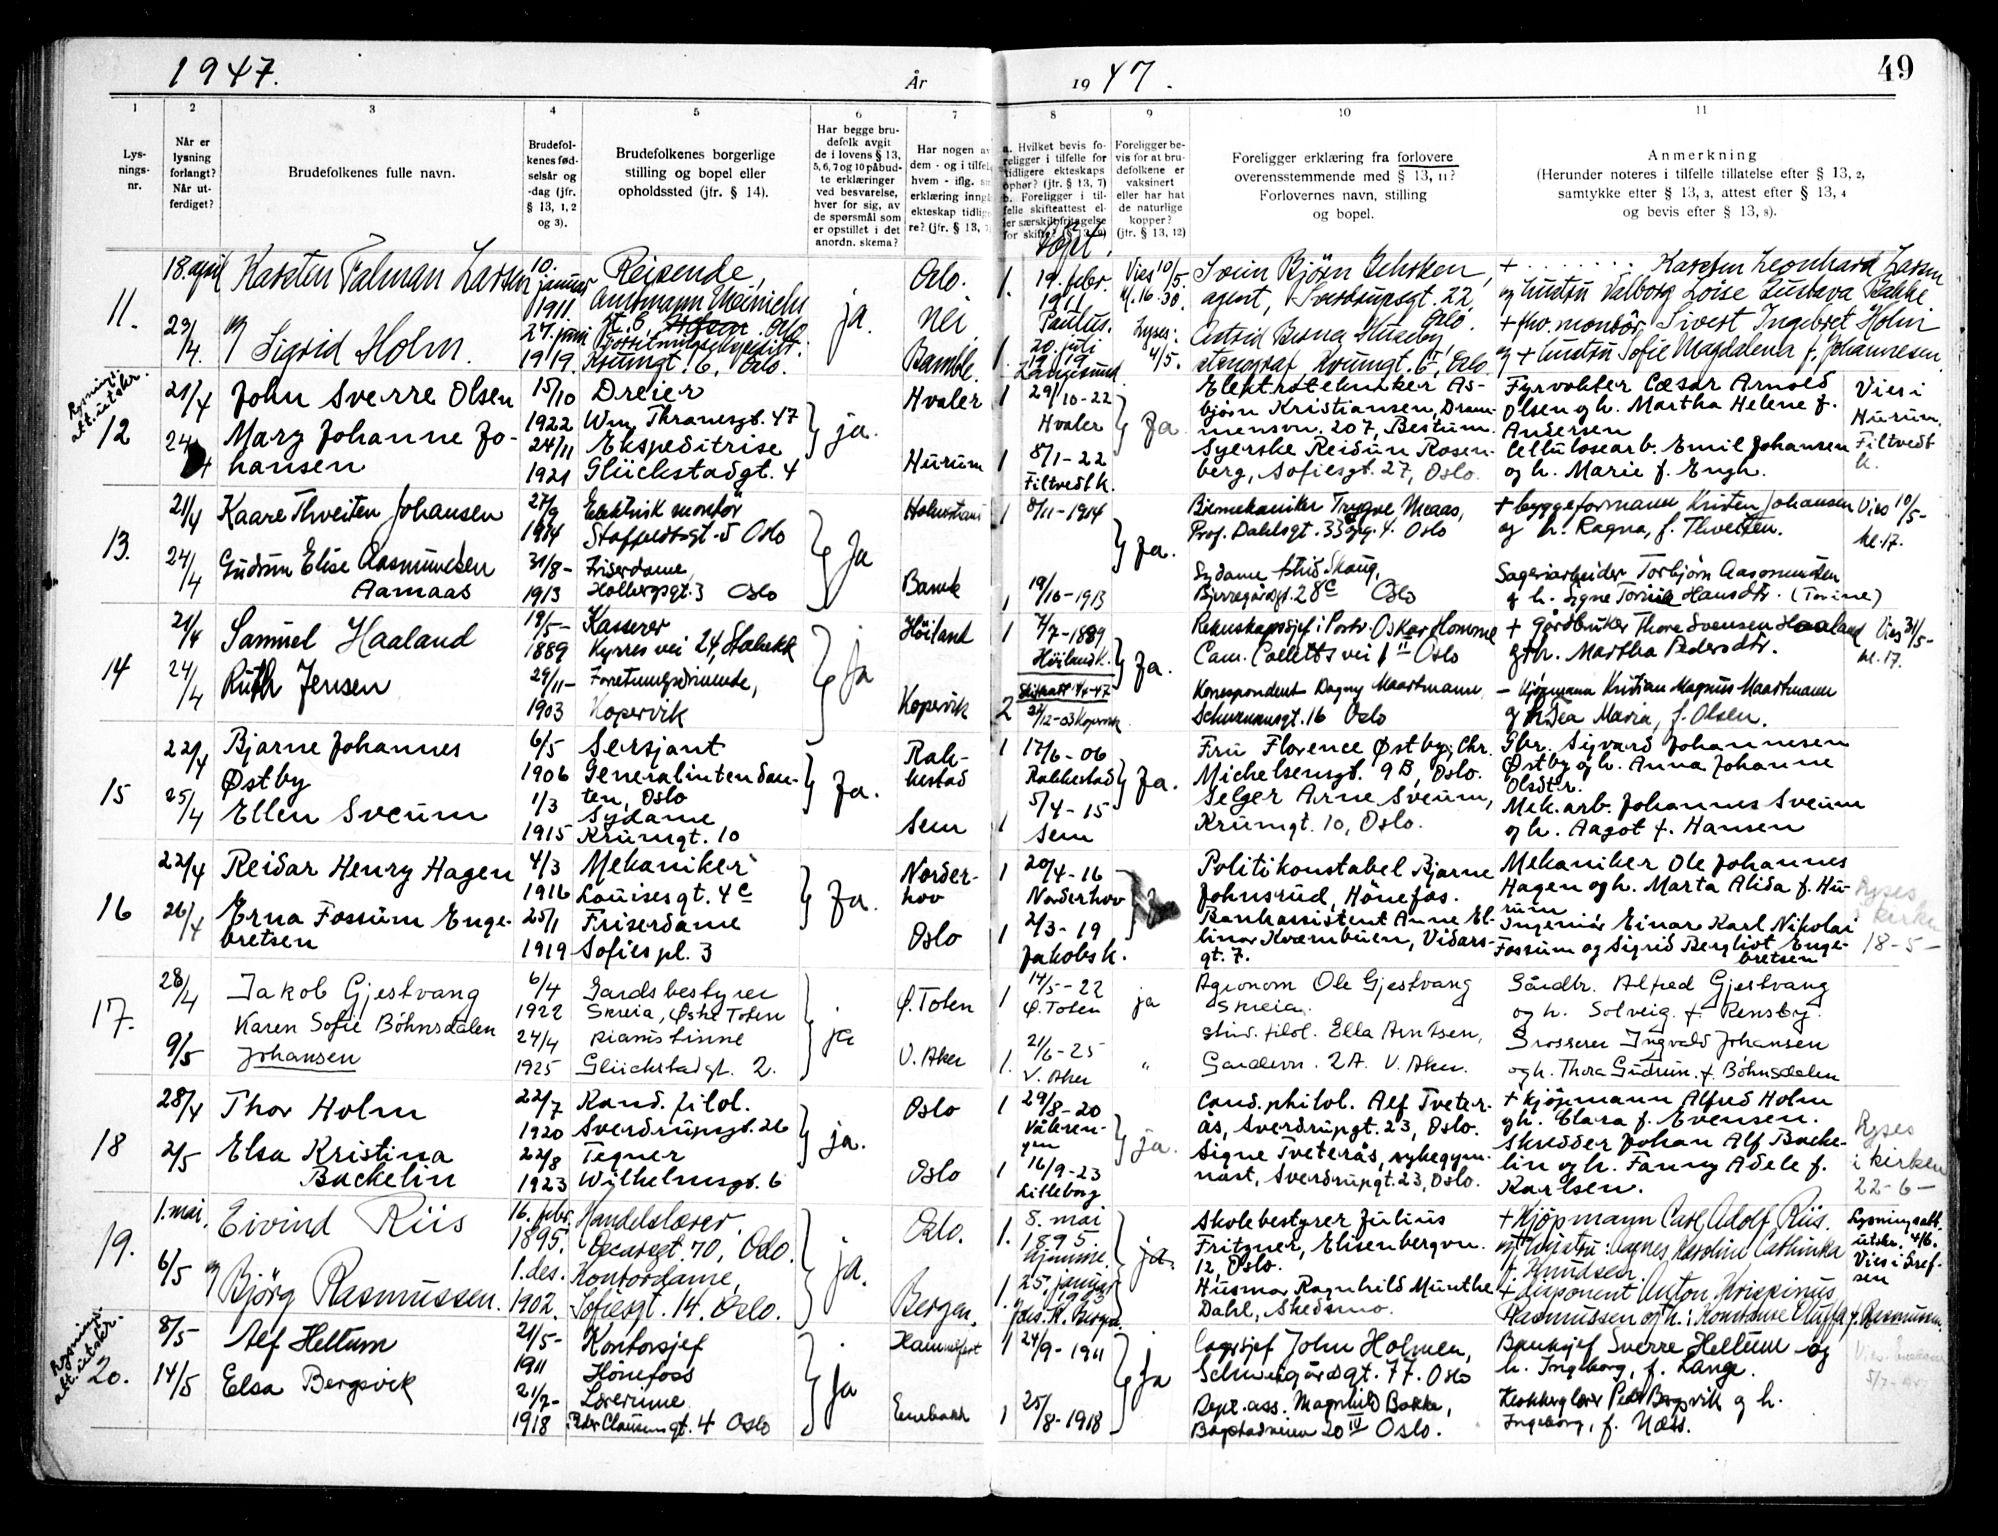 1947.
År
1947.
49
1
2
3
4
5
6
7
8
9
10
11
Lys-
nings-
nr.
Når er
lysning
forlangt?
Når ut-
ferdiget?
Brudefolkenes fulle navn.
Brudefol-
kenes fød-
selsår og
-dag (jfr.
§ 13, 1, 2
og 3).
Brudefolkenes borgerlige
stilling og bopel eller
opholdssted (jfr. § 14).
Har begge bru-
defolk avgit
de i lovens § 13,
5, 6, 7 og 10 påbud-
te erklæringer
ved besvarelse,
hver for sig, av
de spørsmål som
er opstillet i det
anordn. skema?
Har nogen av
dem - og i tilfelle
hvem - iflg.
erklæring inngå
ekteskap tidlige-
re? (jfr. § 13, 7)
a. Hvilket bevis fo-
religger i tilfelle for
tidligere ekteskaps
ophør? (jfr. § 13, 7)
b. Foreligger i til-
felle skifteattest el-
ler særskilt fritagelse
for skifte?
Foreligger be-
vis for at bru-
defolkene er
vaksinert
eller har hat
de naturlige
kopper?
(jfr. § 13, 12)
Foreligger erklæring fra forlovere
overensstemmende med § 13, 11?
Forlovernes navn, stilling
og bopel.
Anmerkning
(Herunder noteres i tilfelle tillatelse efter § 13, 2,
samtykke efter § 13, 3, attest efter § 13, 4
og bevis efter § 13, 8).
11.
18. april
23/4.
Karsten Falman Larsen
og Sigrid Holm.
10.
januar
1911.
27. juni
1919.
Reisende,
Amtmann Meinichs
gt. 6, Oslo
Krumgt. 6, Oslo.
ja.
Oslo.
nei
Bamble.
Døpt.
1. 19. febr.
1911
Paulus.
1. 20. juli
1919
Langesund.
Vies 10/5.
kl. 16.30.
Lyses:
4/5.
Svein Bjørn
agent, Sverdrupsgt. 22,
Oslo.
Astrid Huseby,
stenograf, Krumgt. 6, Oslo
+ Karsten Leonhard Larsen
og hustru Valborg Loise Gustava Bakke
+ montør Sivert Ingebret Holm
og + hustru Sofie Magdalena f. Johannesen.
Lysnings-
att. utskr.
12
21/4
24/4
John Sverre Olsen
Mary Johanne Jo-
hansen
15/10
1922
24/11
1921
Dreier
Wm. Thranesgt. 47
Ekspeditrise
Glückstadgt. 4
ja.
Hvaler
Hurum
1 29/10-22
Hvaler
1 8/1-22
Filtvedt k.
Ja.
Elektrotekniker As-
bjørn Kristiansen, Dram-
mensvn. 207, Bestum.
Syerske Reidun Rosen-
berg, Sofiesgt. 27, Oslo.
Fyrvokter Cæsar Arnold
Olsen og h. Martha Helene f.
Andersen
Cellulosearb. Emil Johansen
og h. Marie f. Engh.
Vies i
Hurum.
Filtvedt
k.
13.
21/4
24/4
Kaare Thveiten Johansen
Gudrun Elise Aasmundsen
Aamaas
27/9
1914
31/8-
1913
Elektrisk montør
Staffeldtsgt. 5 Oslo
Friserdame
Holbergsgt. 3 Oslo
Ja
Holmestrand
Bamle
1 8/11-1914
1 19/10-1913
Ja.
Bilmekaniker Trygve Maas,
Prof. Dahlsgt. 33 opg. 4. Oslo
Sydame Astrid Skaug,
Bjerregårdsgt. 28c Oslo
+ byggeformann Kristen Johansen
og h. Ragna, f. Thveiten.
Sagerarbeider Torbjørn Aasmundsen
og h. Signe Torine Hansdtr. (Torine)
Vies 10/5-
kl. 17.
14
21/4
24/4
Samuel Haaland
Ruth Jensen
19/5-
1889
29/11-
1903
Kasserer
Kyrres vei 24, Stabekk
Forretningsdrivende,
Kopervik
Ja
Höiland
Kopervik
1 7/7-1889
Höiland k.
2
Kopervik
Ja.
Rekneskapssjef i Postv. Oskar Homme
Cam. Colletts vei 1 II Oslo
Korrespondent Dagny Maartmann
Schwensensgt. 16 Oslo
+ gårdbruker Thore Svensen Haaland
og h. Martha Pedersdtr.
- kjøpmann Kristian Magnus Maartmann
og h. Thea Maria, f. Olsen.
Vies 31/5-
kl. 17.
15
22/4
25/4
Bjarne Johannes
Østby
Ellen Sveum
6/5
1906
1/3
1915
Sersjant
Generalintendan-
ten, Oslo
Sydame
Krumgt. 10
Ja.
Rak-
kestad
Sem
1 17/6-06
Rakkestad
1 5/4-15
Sem
Ja.
Fru Florence Østby, Chr.
Michelsensgt. 9B, Oslo.
Selger Arne Sveum,
Krumgt. 10, Oslo.
Gbr. Sigvard Johannesen
Østby og h. Anna Johanne
Olsdtr.
Mek. arb. Johannes Sveum
og h. Aagot f. Hansen
16
22/4
26/4
Reidar Henry Hagen
Erna Fossum Enge-
bretsen
4/3
1916
25/1
1919
Mekaniker
Louisesgt. 4c
Friserdame
Sofies pl. 3
Ja.
Norder-
hov
Oslo
1 20/4-16
Norderhov
1 2/3-19
Jakobs k.
Politikonstabel Bjarne
Johnsrud, Hönefos.
Bankassistent Anne El-
linor Kvernbuen, Vidars-
gt. 7.
Mekaniker Ole Johannes
Hagen og h. Marta Alida f. Hu-
rum
Ingeniör Einar Karl Nikolai
Fossum og Sigrid Bergliot Enge-
bretsen
Lyses
i kirken
18-5-
17.
28/4
9/5
Jakob Gjestvang
Karen Sofie Böhnsdalen
Johansen
6/4
1922
24/4
1925
Gardsbestyrer
Skreia, Østre Toten
Pianistinne
Glückstadgt. 2.
ja
Ø. Toten
V. Aker
1 14/5-22
Ø. Toten
1. 21/6-25
V. Aker
ja
"
Agronom Ole Gjestvang
Skreia.
Stud. filol. Ella Arntsen,
Gardevn. 2A. V. Aker.
Gårdbr. Alfred Gjestvang
og h. Solveig f. Rensby.
Grosserer Ingvald Johansen
og h. Thora Gudrun f. Böhnsdalen
18
28/4
2/5
Thor Holm
Elsa Kristina
Backelin
22/7
1920
22/8
1923
Kand. filol.
Sverdrupsgt. 26
Tegner
Wilhelmsgt. 6
ja.
Oslo
Oslo
1 29/8-20
Våleren-
gen
1 16/9-23
Lilleborg
ja.
Cand. philol. Alf Tveter-
ås, Sverdrupgt. 23, Oslo.
Signe Tveterås, sykegym-
nast, Sverdrupgt. 23, Oslo.
+ kjøpmann Alfred Holm
og h. Clara f. Evensen.
Skredder Johan Alf Backe-
lin og h. Fanny Adele f.
Karlsen.
Lyses
i kirken
22-6-
19.
1. mai.
6/5
Eivind Riis
og Bjørg Rasmussen.
16. febr.
1895.
1. des.
1902.
Handelslærer,
Oscarsgt. 70, Oslo.
Kontordame,
Sofiesgt. 14. Oslo.
ja.
Oslo.
Bergen.
1. 5. mai
1895.
hjemme.
1. 25. januar
1903
Bergen.
ja.
Skolebestyrer Julius
Fritzner, Elisenbergvn.
12, Oslo.
Husmor Ragnhild Munthe
Dahl, Skedsmo.
+ Kjøpmann Carl Adolf Riis.
og hustru: Agnes Karoline Cathinka
f. Knudsen.
+ disponent Anton Krispinus
Rasmussen og h.: Konstanse Oluffa f. Rasmussen.
Lysningsatt.
utskr. 4/6.
Vies i Gref-
sen
Lysnings-
att. utskr.
20.
8/5
14/5
Alf Hellum
Elsa Bergsvik
21/5-
1911
21/7-
1918
Kontorsjef
Hönefoss
Lærerinne
Peder Claussøns gt. 4 Oslo
Ja
Hammerfest
Enebakk
1 24/9-1911
1 25/8-1918
Ja
Lagersjef John Holmen,
Schweigårdsgt. 77. Oslo
Dept. ass. Magnhild Bakke,
Bogstadveien 20 IV Oslo.
Banksjef Sverre Hellum og
h. Ingeborg, f. Lange.
Klokker lærer Peder Bergsvik og h.
Ingeborg, f. Næss.